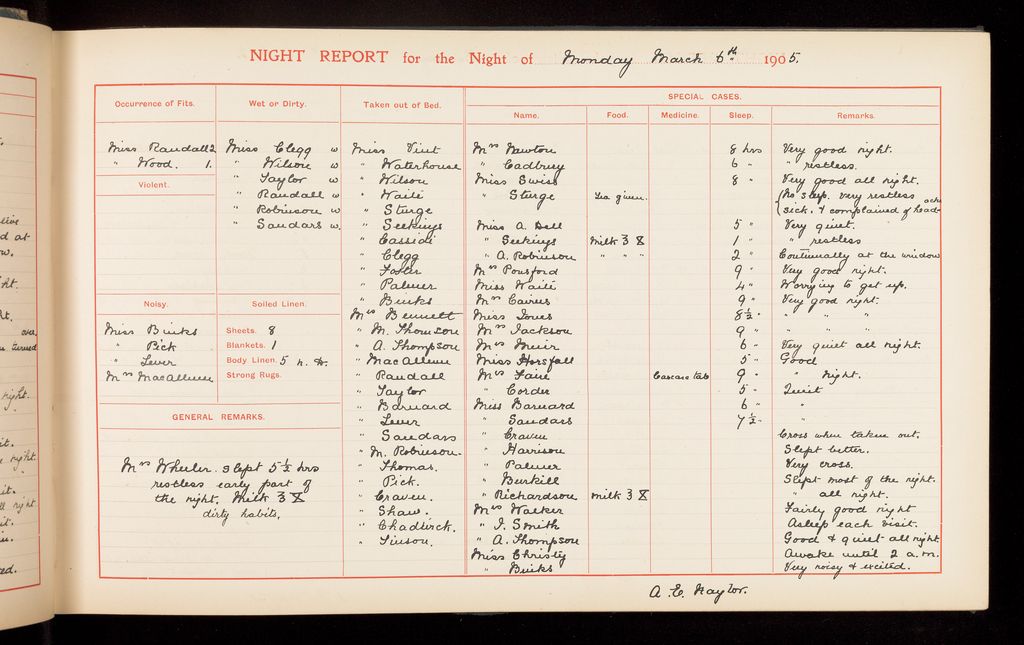 NIGHT REPORT for the Night of Monday March 6th 1905.
Occurrence of Fits.
Miss Randall 2
" Wood. 1.
Violent.
Noisy.
Miss Binks
" Pick
" Lever
Mrs MacAllum
Wet or Dirty.
Miss Clegg w
" Wilson w
" Taylor w
" Randall w
" Robinson w
" Saudars w.
Soiled Linen.
Sheets. 8
Blankets. 1
Body Linen. 5 n. d.
Strong Rugs.
GENERAL REMARKS.
Mrs Wheeler. slept 5½ hrs
restless early part of
the night. Milk ℥ X
dirty habits.
Taken out of Bed.
Miss Vint
" Waterhouse
" Wilson
" Waite
" Sturge
" Seekings
" Cassidi
" Clegg
" Foster
" Palmer
" Binks
Mrs Bennett
" M. Thomson
" A. Thompson
" MacAllum
" Randall
" Taylor
" Barnard
" Lever
" Saudars
" M. Robinson.
" Thomas.
" Pick.
" Craven.
" Shaw.
" Chadwick.
" Simson.
SPECIAL CASES.
Name. Food. Medicine. Sleep. Remarks.
Mrs Newton 8 hrs Very good night.
" Cadbury 6 " " restless.
Miss Swiss 8 " Very good all night.
" Sturge Tea given. No sleep. very restless
sick. & complained of head-ache
Miss A. Bell 5 " Very quiet.
" Seekings Milk ℥ X 1 " " restless
" A. Robinson " " " 2 " Continually at the window
Mrs Ponsford 9 " Very good night.
Miss Waite 4 " Worrying to get up.
Mrs Cairns 9 " Very good night.
Miss Jones 8½ " " " "
Mrs Jackson 9 " " " "
Mrs Muir 6 " Very quiet all night.
Miss Horsfall 5 " Good
Mrs Faire Cascara tab 9 " " night.
" Corder 5 " Quiet
Miss Barnard 6 " "
" Saudars 7½ " "
" Craven Cross when taken out.
" Harrison Slept better.
" Palmer Very cross.
" Burkill Slept most of the night.
" Richardson Milk ℥ X " all night.
Mrs Walker Fairly good night
" J. Smith Asleep each visit.
" A. Thompson Good & quiet all night
Miss Christy Awake until 2 a.m.
" Binks Very noisy & excited.
A. E. Naylor.